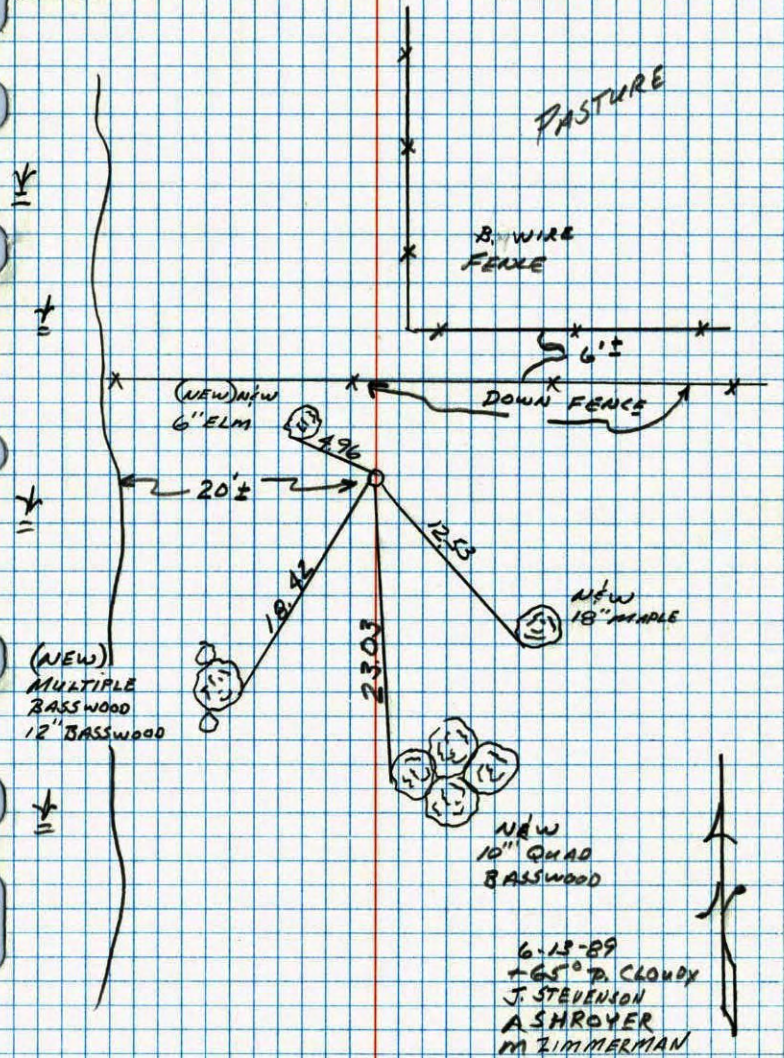 PASTURE
B. WIRE
FENCE
6'±
DOWN FENCE
(NEW) N&W
6" ELM
4.96
20'±
12.53
18.42
23.03
N&W
18" MAPLE
(NEW)
MULTIPLE
BASSWOOD
12" BASSWOOD
N&W
10" QUAD
BASSWOOD
6-13-89
+65° P. CLOUDY
J. STEVENSON
A SHROYER
M ZIMMERMAN